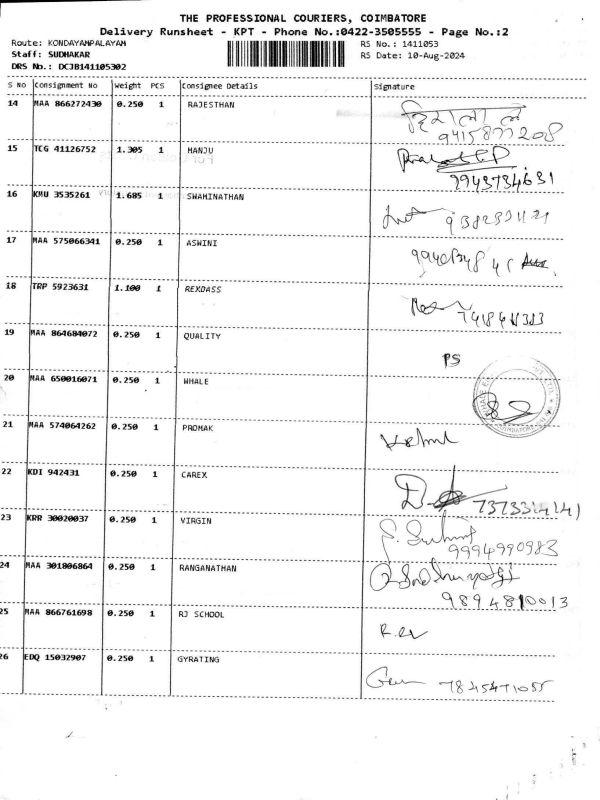 THE PROFESSIONAL COURIERS, COIMBATORE
Delivery Runsheet - KPT - Phone No.:0422-3505555 - Page No.:2
Route: KONDAYAMPALAYAM
Staff: SUDHAKAR
DRS No.: DCJB141105302
RS No.: 1411053
RS Date: 10-Aug-2024
S No Consignment No Weight PCS Consignee Details Signature
14 MAA 866272430 0.250 1 RAJESTHAN
9415877208
15 TCG 41126752 1.305 1 MANJU
9943734631
16 KMU 3535261 1.685 1 SWAMINATHAN
17 MAA 575066341 0.250 1 ASWINI
18 TRP 5923631 1.100 1 REXDASS
19 MAA 864684072 0.250 1 QUALITY
PS
20 MAA 650016071 0.250 1 WHALE
21 MAA 574064262 0.250 1 PROMAK
22 KDI 942431 0.250 1 CAREX
23 KRR 30020037 0.250 1 VIRGIN
9994990983
24 MAA 301806864 0.250 1 RANGANATHAN
9894810013
25 MAA 866761698 0.250 1 RJ SCHOOL
26 EDQ 15032907 0.250 1 GYRATING
7845471055